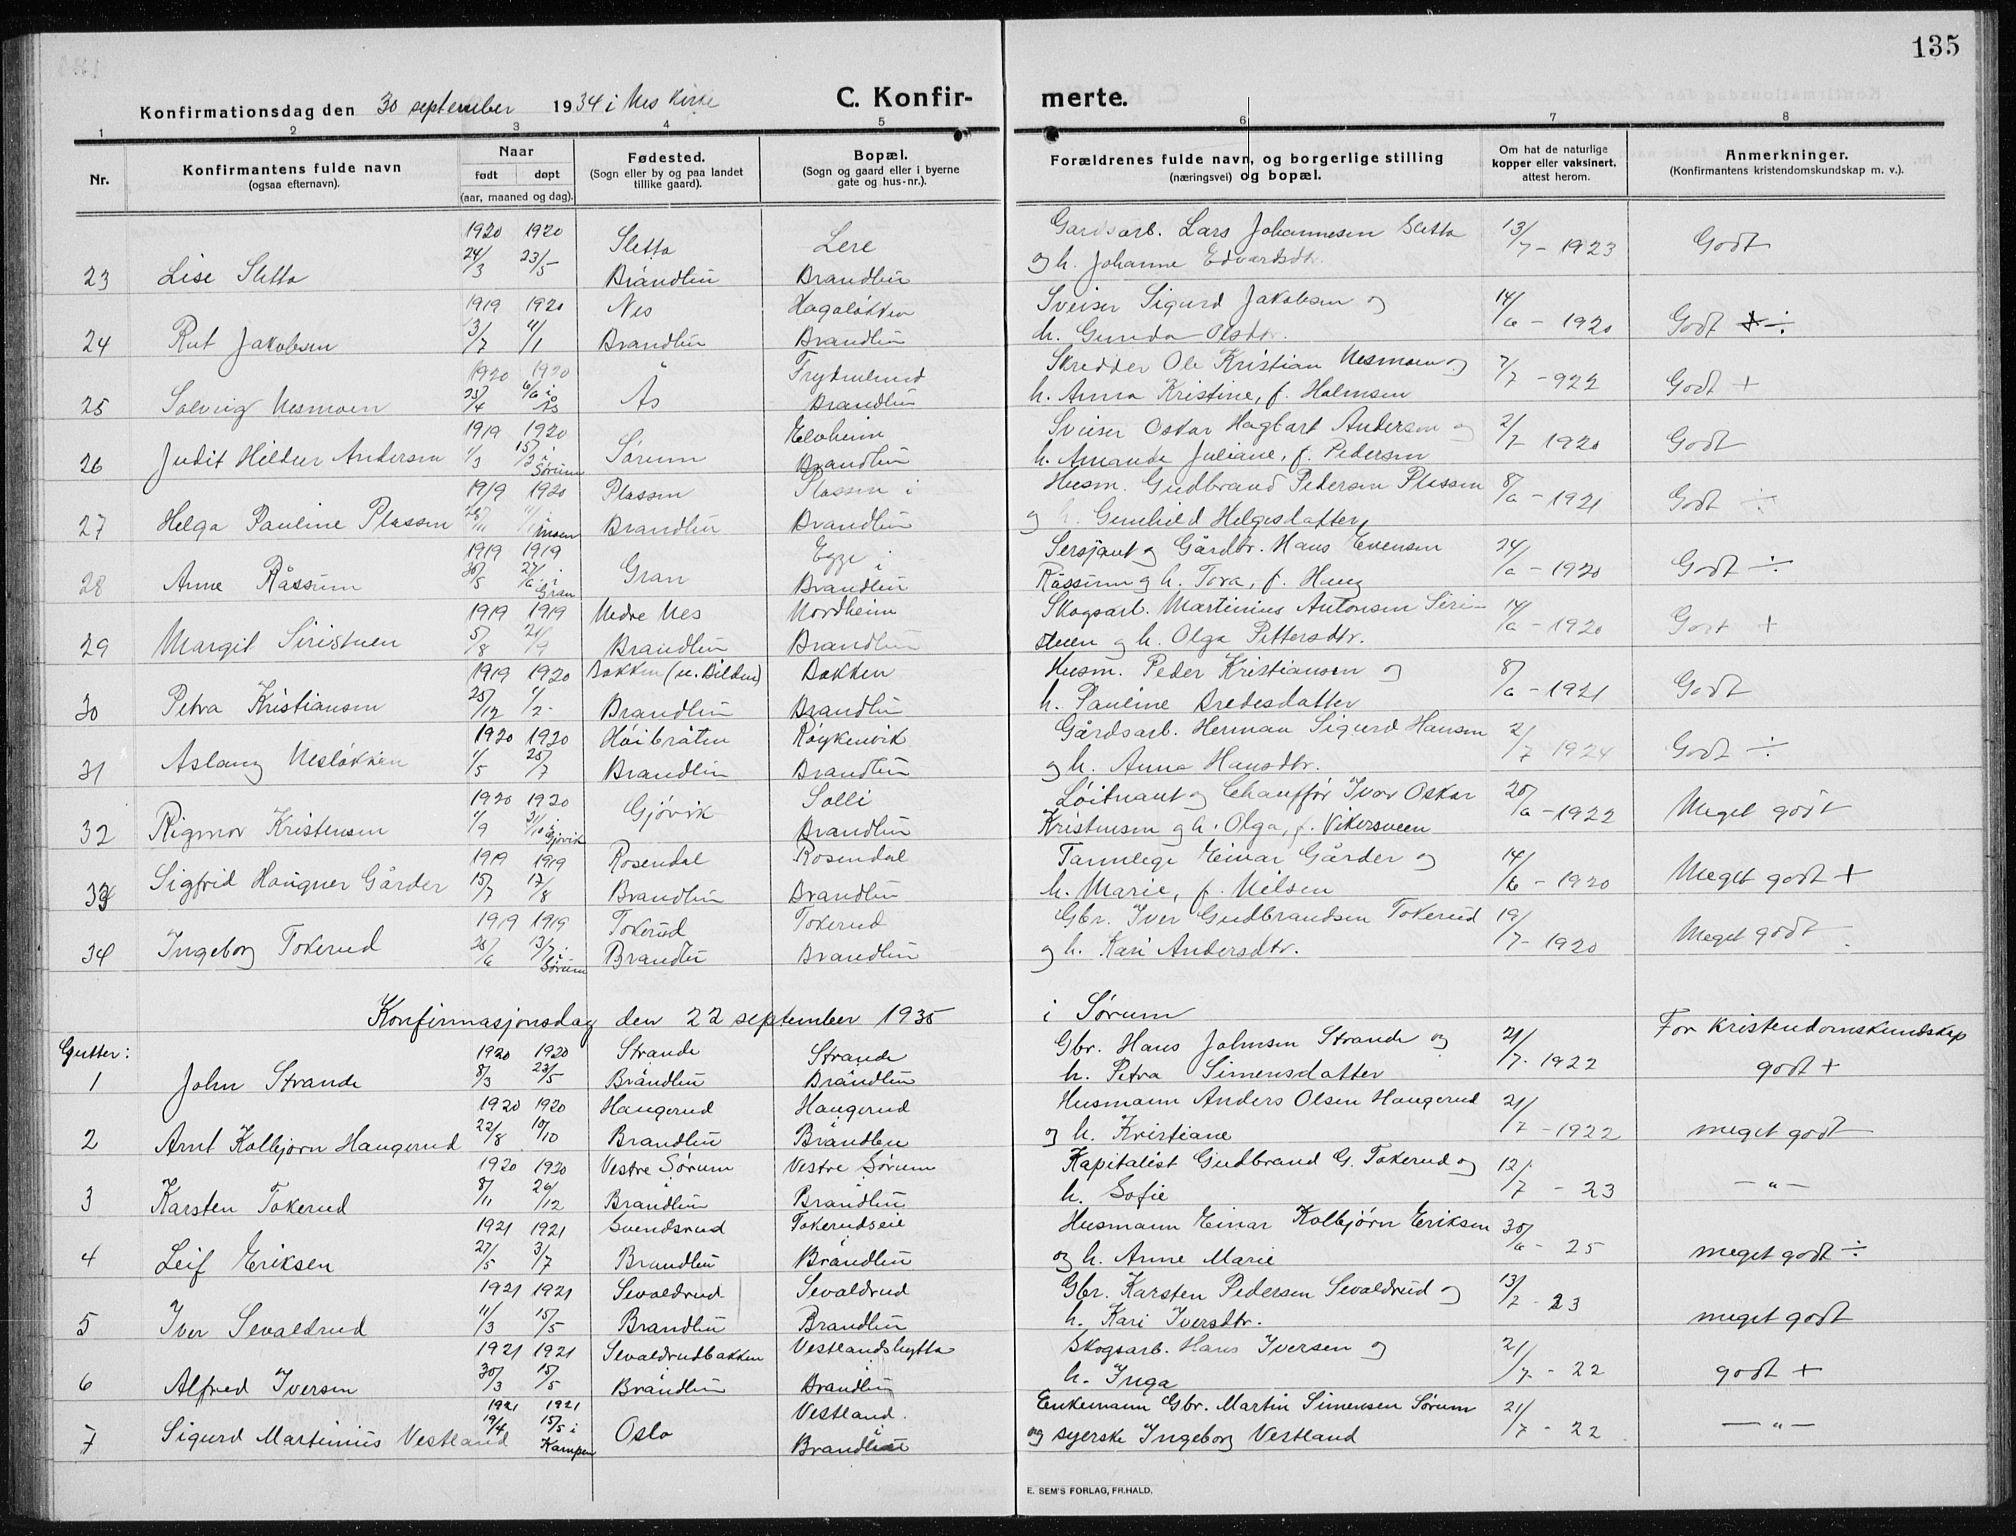 135
Konfirmationsdag den 30 september 1934 i Nes kirke C. Konfirmerte.
1 2 3 4 5 6 7 8
Nr. Konfirmantens fulde navn (ogsaa efternavn). Naar født døpt (aar, maaned og dag). Fødested. (Sogn eller by og paa landet tillike gaard). Bopæl. (Sogn og gaard eller i byerne gate og hus-nr.). Forældrenes fulde navn, og borgerlige stilling (næringsvei) og bopæl. Om hat de naturlige kopper eller vaksinert. attest herom. Anmerkninger. (Konfirmantens kristendomskundskap m. v.).
1920 1920 Sletta Lere Gardsarb. Lars Johannesen Sletta 13/7 - 1923 Godt
23 Lise Sletta 24/3 23/5 Brandbu Brandbu og h. Johanne Edvardsdtr.
1919 1920 Nes Hagaløkken Sveiser Sigurd Jakobsen og 14/6 - 1920 Godt ÷
24 Rut Jakobsen 3/7 4/1 Brandbu Brandbu h. Gunda Olsdtr.
1920 1920 Ås Frydenlund Skredder Ole Kristian Nesmoen og 7/7 - 922 Godt +
25 Solveig Nesmoen 25/4 6/6 i Ås Brandbu h. Anna Kristine, f. Holmsen
1919 1920 Sørum Elvheim Sveiser Oskar Hagbart Andersen og 2/7 - 1920 Godt
26 Judit Hildur Andersen 1/3 15/2 i Sørum Brandbu h. Amanda Juliane, f. Pedersen
1919 1920 Plassen Plassen i Husm. Gudbrand Pedersen Plassen 8/6 - 1921 Godt ÷
27 Helga Pauline Plassen 28/11 Brandbu Brandbu og h. Gunhild Helgesdatter
1919 1919 Gran Egge i Sersjant og Gårdbr. Hans Evensen 24/6 - 1920 Godt ÷
28 Anne Råssum 30/5 27/6 i Gran Brandbu Råssum og h. Tora, f. Haug
1919 1919 Nedre Nes Nordheim Skogsarb. Martinius Antonsen Siri- 14/6 - 1920 Godt +
29 Margit Siristuen 5/8 21/9 Brandbu Brandbu stuen og h. Olga Pettersdtr.
1919 1920 Bakken (u. Bilden) Bakken Husm. Peder Kristiansen og 8/6 - 1921 Godt
30 Petra Kristiansen 25/12 1/2 Brandbu Brandbu h. Pauline Bredesdatter
1920 1920 Høibråten Røykenvik Gårdsarb. Herman Sigurd Hansen 2/7 1924 Godt ÷
31 Aslaug Nesløkken 1/5 25/7 Brandbu Brandbu og h. Anna Hansdtr.
1920 1920 Gjøvik Solli Løitnant og Chauffør Ivar Oskar 20/6 - 1922 Meget godt
32 Rigmor Kristensen 1/9 31/10 i Gjøvik Brandbu Kristensen og h. Olga, f. Vikersveen
1919 1919 Rosendal Rosendal Tannlege Einar Gårder og 14/6 - 1920 Meget godt +
33 Sigfrid Haugner Gårder 15/7 17/8 Brandbu Brandbu h. Marie, f. Nilsen
1919 1919 Tokerud Tokerud Gbr. Iver Gudbrandsen Tokerud 19/7 - 1920 Meget godt ÷
34 Ingeborg Tokerud 25/6 13/7 i Sørum Brandbu Brandbu og h. Kari Andersdtr.
Konfirmasjonsdag den 22 september 1935 i Sørum
Gutter: For kristendomskundskap
1920 1920 Strande Strande Gbr. Hans Johnsen Strande og 21/7 - 1922 godt +
1 John Strande 8/3 23/5 Brandbu Brandbu h. Petra Simensdatter
1920 1920 Haugerud Haugerud Husmann Anders Olsen Haugerud 21/7 - 1922 meget godt
2 Arnt Kolbjørn Haugerud 22/8 10/10 Brandbu Brandbu og h. Kristiane
1920 1920 Vestre Sørum Vestre Sørum Kapitalist Gudbrand G. Tokerud og 12/7 - 23 - " -
3 Karsten Tokerud 8/11 26/12 Brandbu Brandbu h. Sofie
1921 1921 Svendsrud Tokerudseie Husmann Einar Kolbjørn Eriksen 30/6 - 25 meget godt ÷
4 Leif Eriksen 27/5 3/7 Brandbu Brandbu og h. Anne Marie
1921 1921 Sevaldrud Sevaldrud Gbr. Karsten Pedersen Sevaldrud og 13/7 - 23 meget godt
5 Iver Sevaldrud 11/3 15/5 Brandbu Brandbu h. Kari Iversdtr.
1921 1921 Sevaldrudbakken Vestlandshytta Skogsarb. Hans Iversen og 21/7 - 22 godt +
6 Alfred Iversen 30/3 15/5 Brandbu Brandbu h. Inga
1921 1921 Oslo Vestland. Enkemann Gbr. Martin Simensen Sørum 21/7 - 22 - " -
7 Sigurd Martinius Vestland 19/4 15/5 i Kampen Brandbu og syerske Ingeborg Vestland
E. SEM'S FORLAG, FR.HALD.